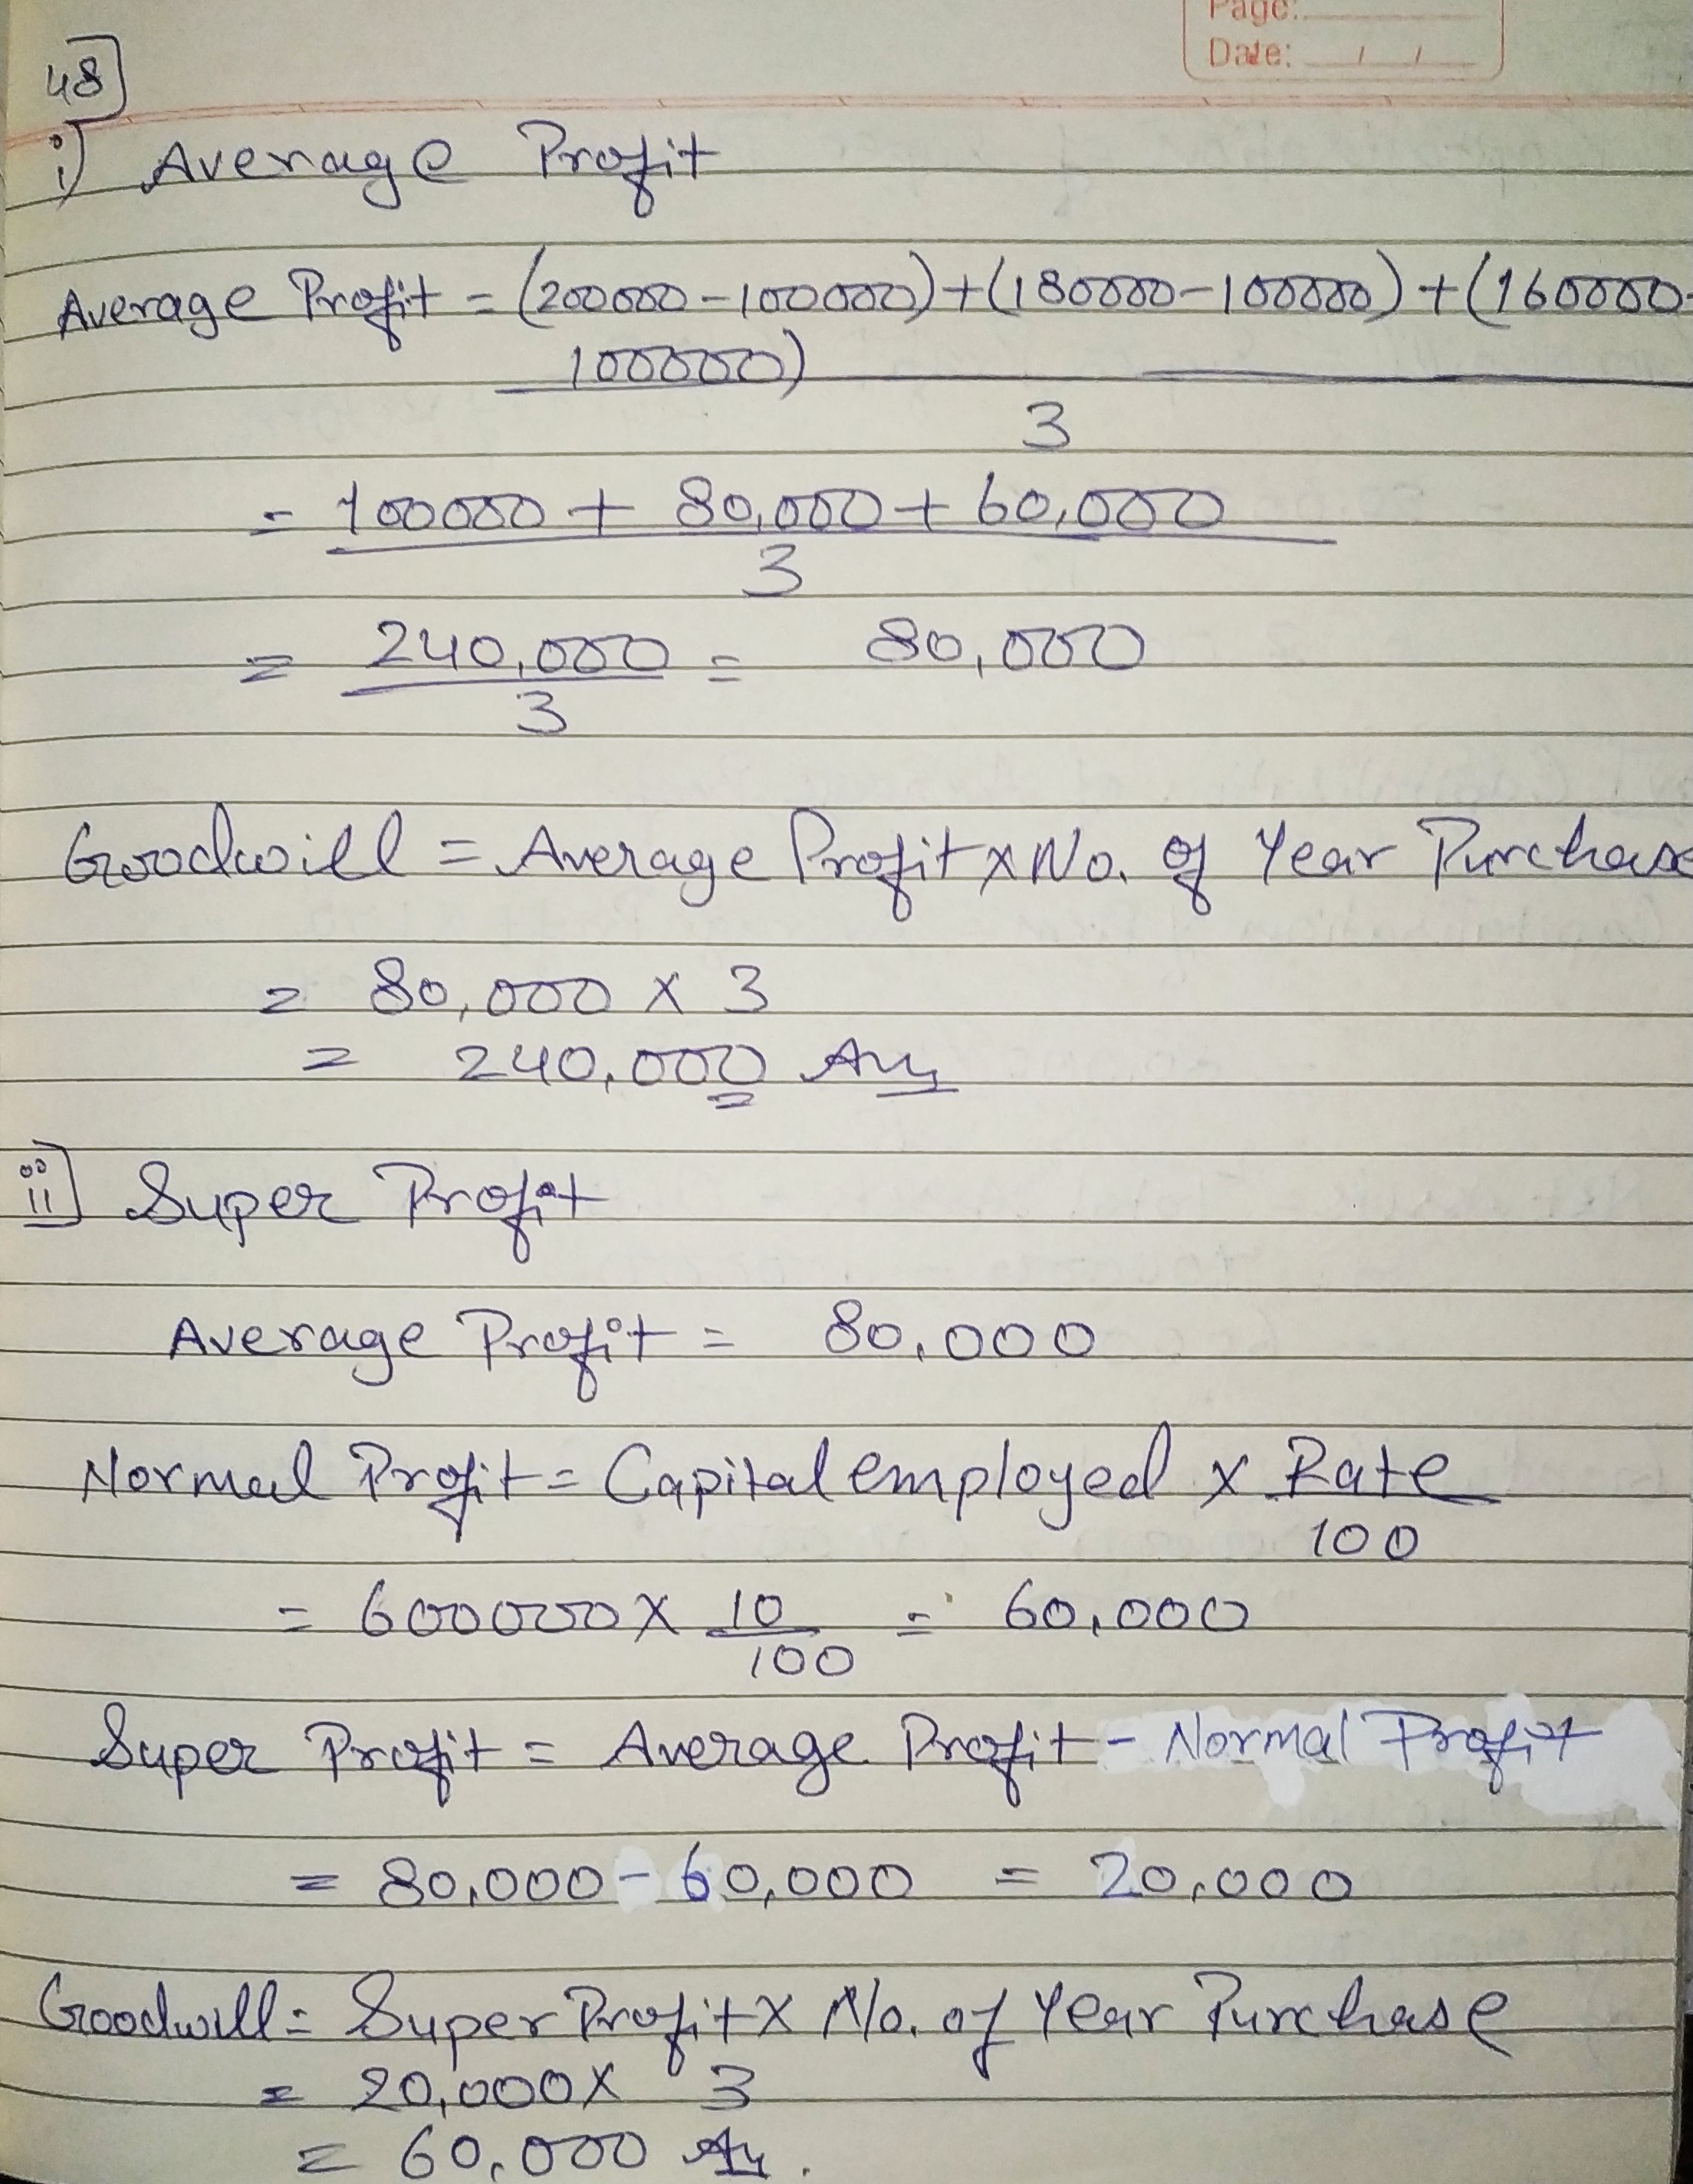 Page:
Date: / /
48
i) Average Profit
Average Profit = (200000-100000)+(180000-100000)+(160000-
100000)
3
= 100000 + 80,000 + 60,000
3
= 240,000 = 80,000
3
Goodwill = Average Profit x No. of Year Purchase
= 80,000 x 3
= 240,000 Ans
ii) Super Profit
Average Profit = 80,000
Normal Profit = Capital employed x Rate
100
= 600000 x 10 = 60,000
100
Super Profit = Average Profit - Normal Profit
= 80,000 - 60,000 = 20,000
Goodwill = Super Profit x No. of Year Purchase
= 20,000 x 3
= 60,000 Ans.